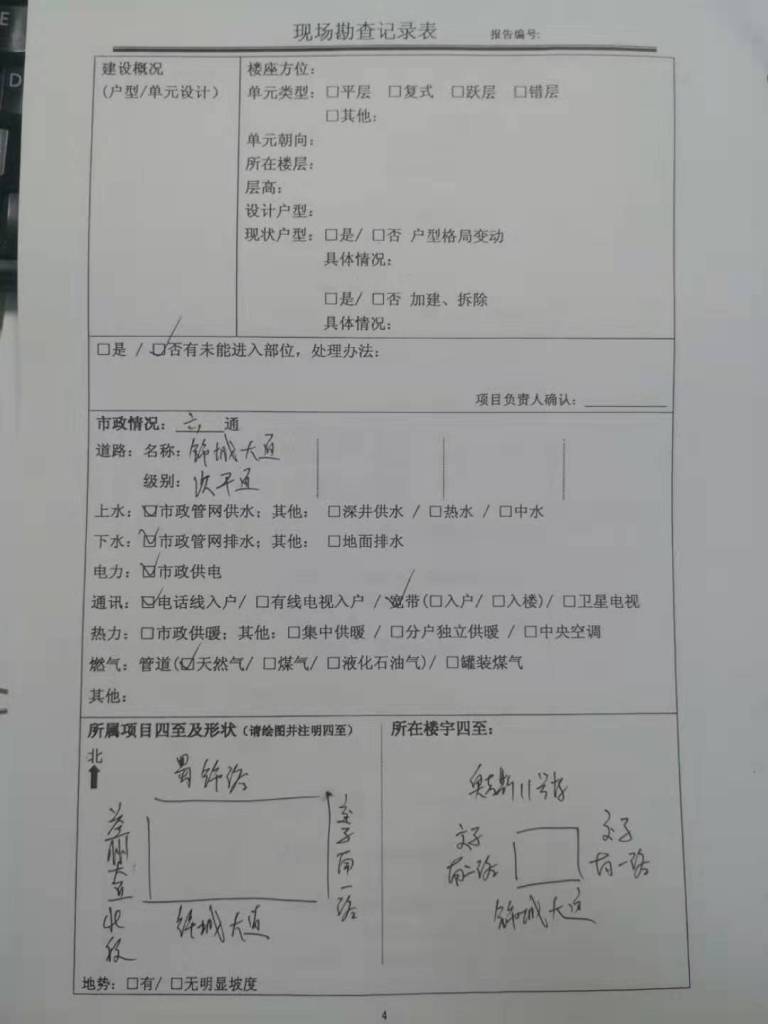 现场勘查记录表 报告编号:
建设概况
(户型/单元设计)
楼座方位:
单元类型: □平层 □复式 □跃层 □错层
□其他:
单元朝向:
所在楼层:
层高:
设计户型:
现状户型: □是/ □否 户型格局变动
具体情况:
□是/ □否 加建、拆除
具体情况:
□是 / ☑否有未能进入部位, 处理办法:
项目负责人确认:
市政情况: 六 通
道路: 名称: 锦城大道
级别: 次干道
上水: ☑市政管网供水; 其他: □深井供水 / □热水 / □中水
下水: ☑市政管网排水; 其他: □地面排水
电力: ☑市政供电
通讯: ☑电话线入户/ □有线电视入户 / ☑宽带(□入户/ □入楼)/ □卫星电视
热力: □市政供暖; 其他: □集中供暖 / □分户独立供暖 / □中央空调
燃气: 管道(☑天然气/ □煤气/ □液化石油气)/ □罐装煤气
其他:
所属项目四至及形状 (请绘图并注明四至)
北
蜀锦路
益州大道北段
交子南一路
锦城大道
所在楼宇四至:
奥克斯11号楼
交子
南二路
交子
南一路
锦城大道
地势: □有/ □无明显坡度
4